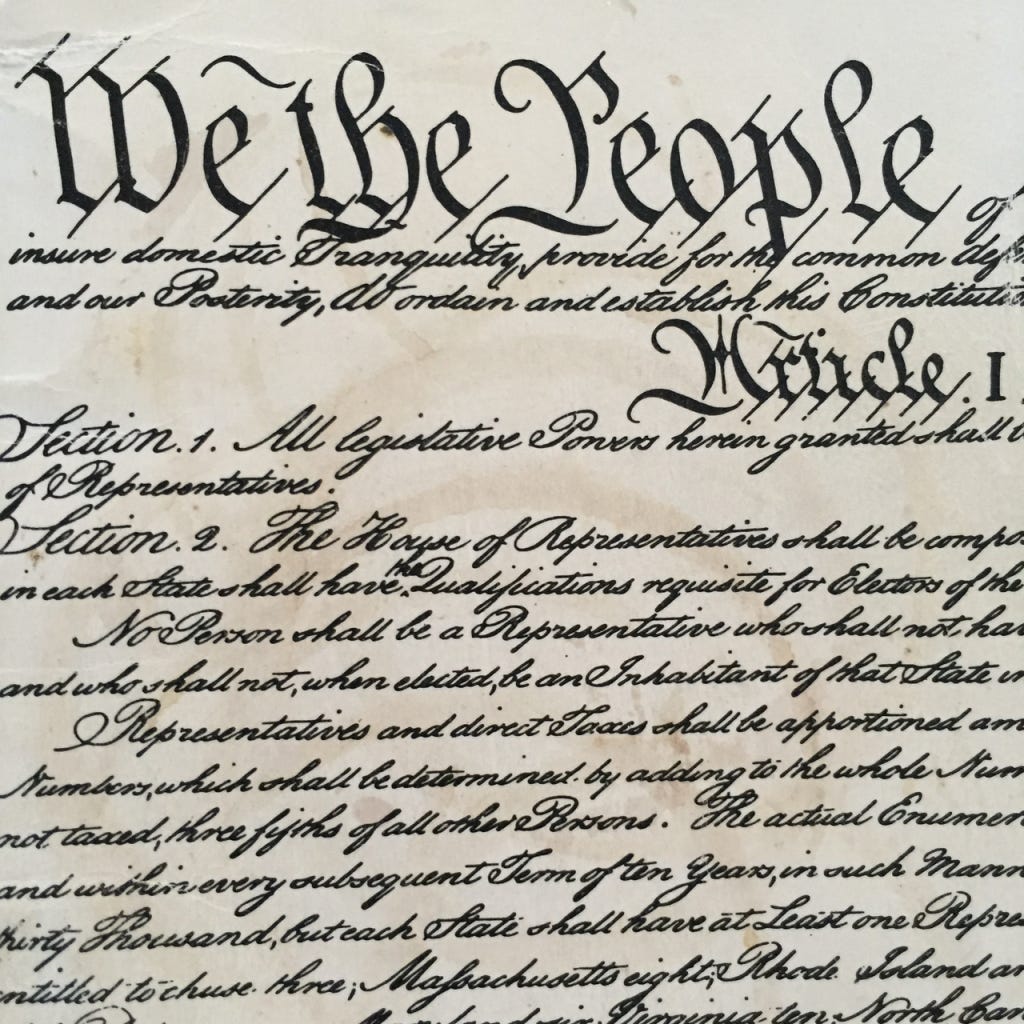 We the People of
insure domestic Tranquility, provide for the common
and our Posterity, do ordain and establish this Constitution
Article. I.
Section. 1. All legislative Powers herein granted shall
of Representatives.
Section. 2. The House of Representatives shall be
in each State shall have the Qualifications requisite for Electors of the
No Person shall be a Representative who shall not
and who shall not, when elected, be an Inhabitant of that State
Representatives and direct Taxes shall be apportioned
Numbers, which shall be determined by adding to the whole
not taxed, three fifths of all other Persons. The actual
and within every subsequent Term of ten Years, in such
thirty Thousand, but each State shall have at Least one
entitled to chuse three, Massachusetts eight, Rhode Island
Virginia ten, North